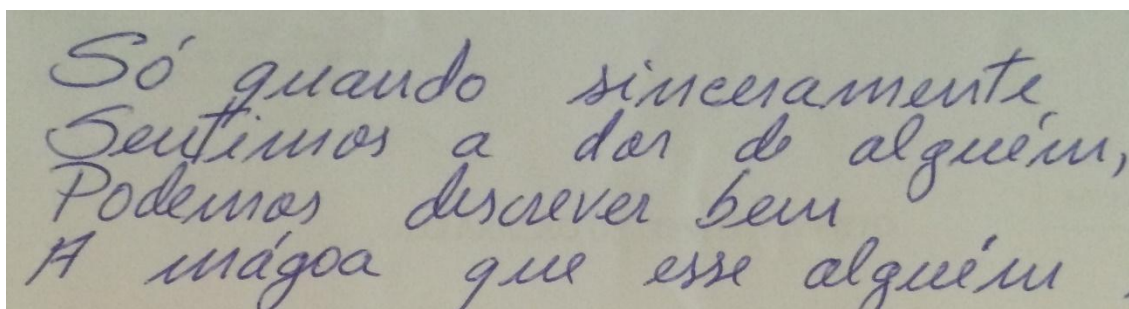 Só quando sinceramente
Sentimos a dor de alguém,
Podemos descrever bem
A mágoa que esse alguém